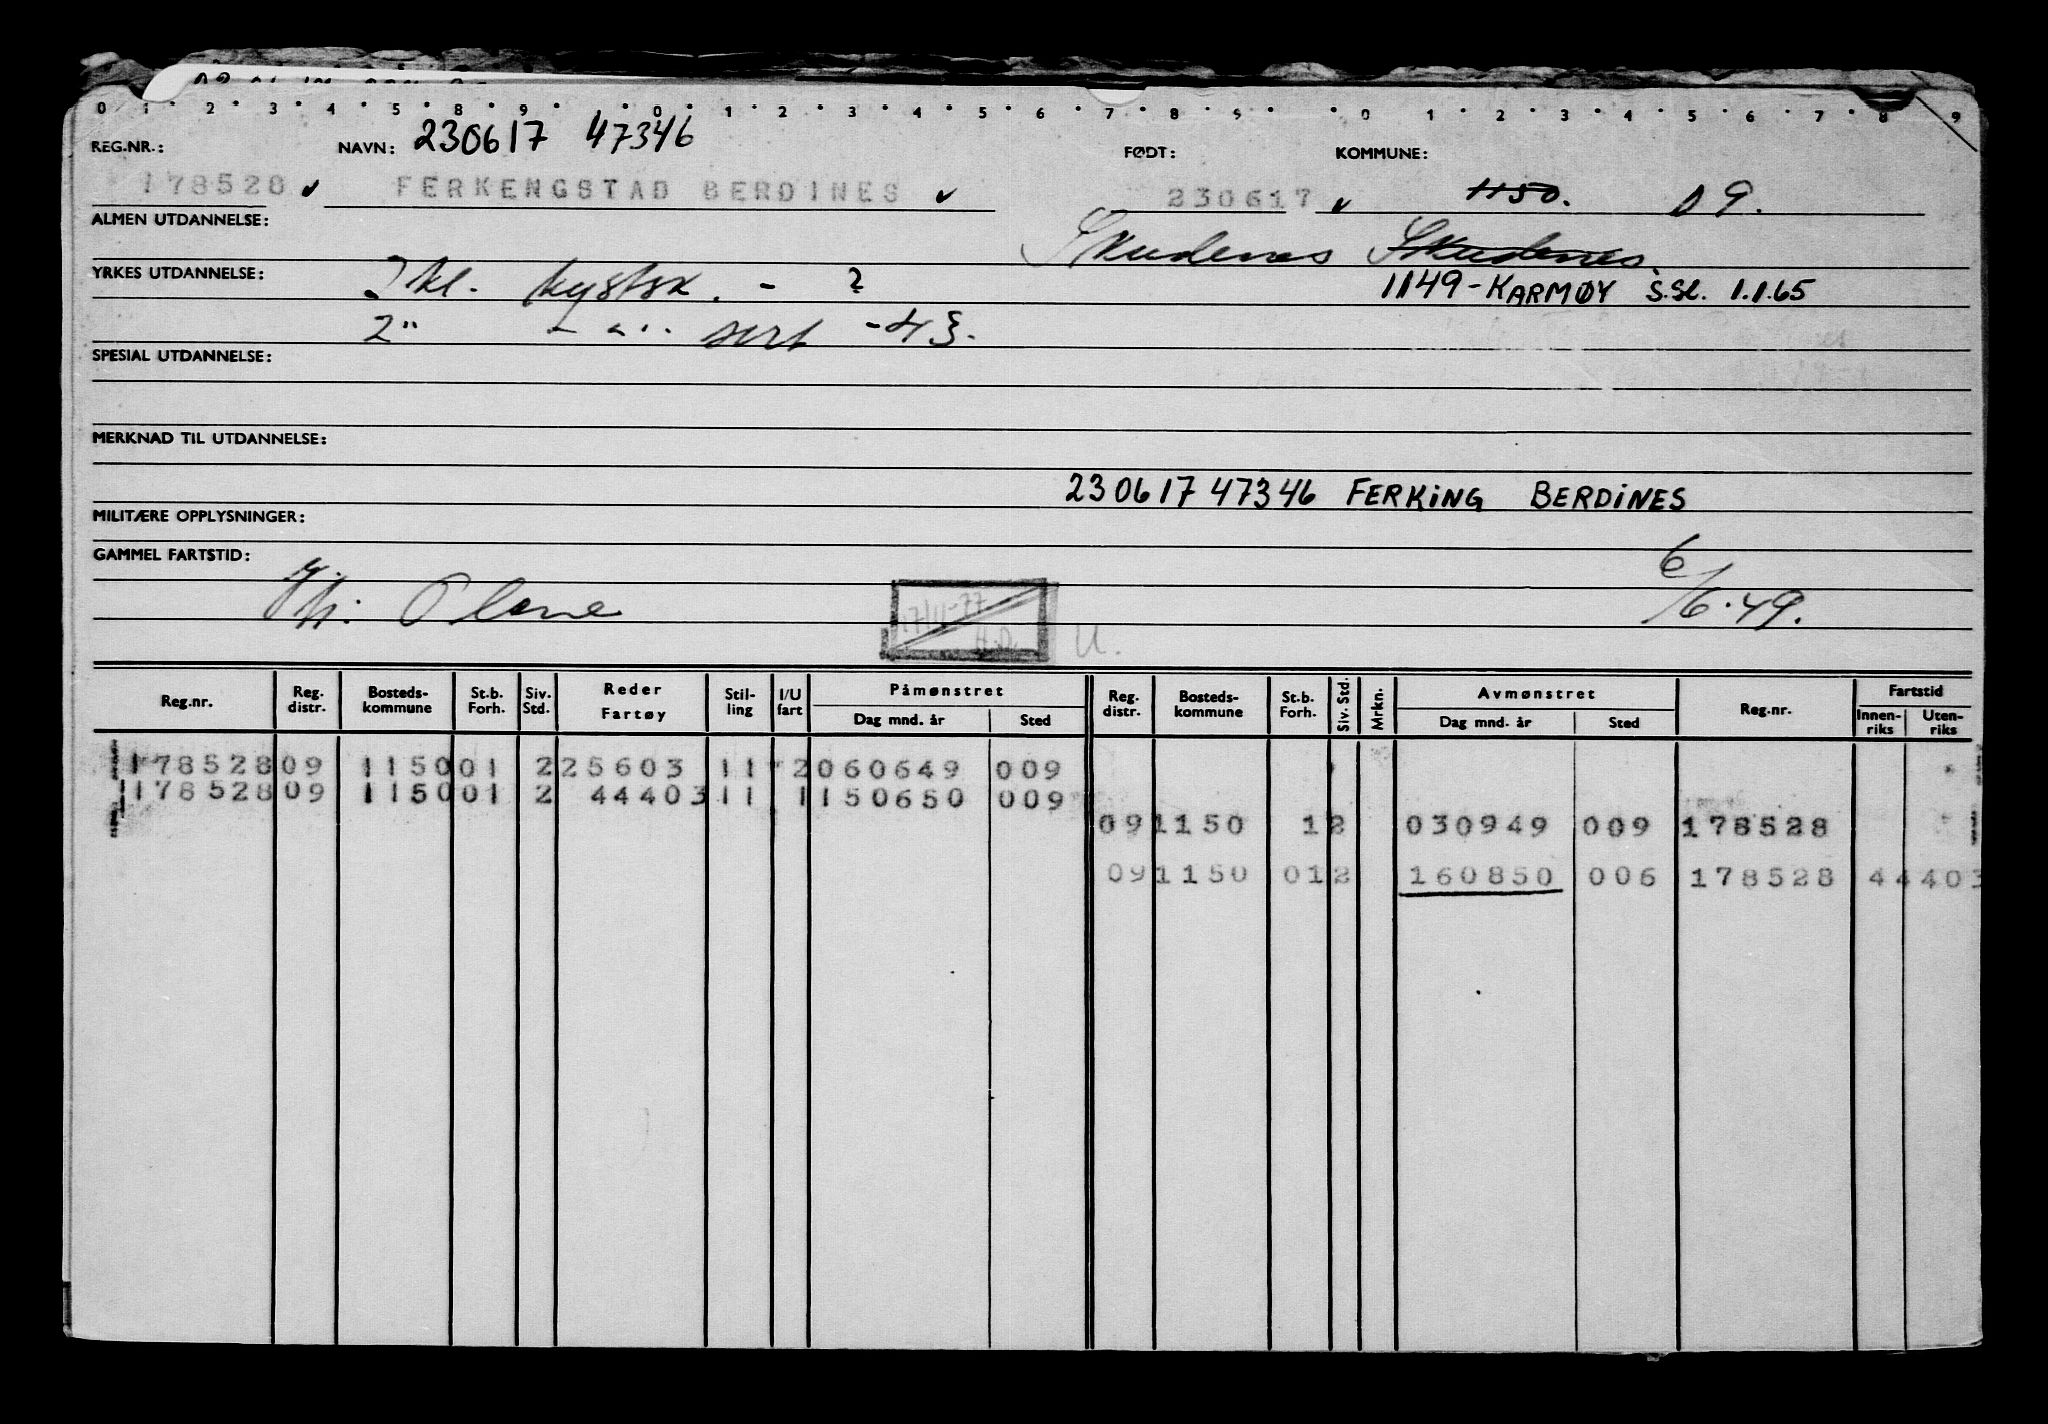 0 1 2 3 4 5 8 9 0 1 2 3 4 5 6 7 8 9 0 1 2 3 4 5 6 7 8 9
REG.NR.: NAVN: 230617 47346 FØDT: KOMMUNE:
178528 FERKENGSTAD BERDINES 230617 1150. 09.
ALMEN UTDANNELSE: Skudenes Skudenes
YRKES UTDANNELSE: kl. kystsk. - ? 1149-KARMØY S.Sl. 1.1.65
2 " sert -43.
SPESIAL UTDANNELSE:
MERKNAD TIL UTDANNELSE:
230617 47346 FERKING BERDINES
MILITÆRE OPPLYSNINGER:
GAMMEL FARTSTID: 6/6.49.
17/11-77 U.
Reg.nr. Reg. distr. Bosteds-kommune St.b. Forh. Siv. Std. Reder Fartøy Stil-ling I/U fart Påmønstret Dag mnd. år Sted Reg. distr. Bosteds-kommune St.b. Forh. Siv. Std. Mrkn. Avmønstret Dag mnd. år Sted Reg.nr. Fartstid Innen-riks Uten-riks
178528 09 1150 01 2 25603 11 2 060649 009
178528 09 1150 01 2 44403 11 1 150650 009
09 1150 1 2 030949 009 178528
09 1150 01 2 160850 006 178528 44403